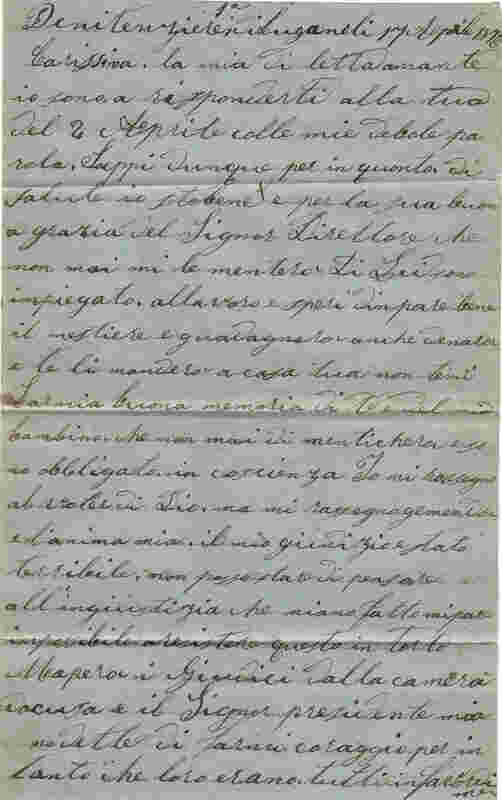 Penitenzieri Lugano li 17 Aprile
Carissima. la mia di letta amante
io sono a risponderti alla tua
del 2 Aprile colle mie debole pa
rola. Sappi dunque per in quonto. di
salute io sto bene e per la sua buon
a grazia del Signor Direttore che
non mai mi le mentero. Di Lui sono
impiegato. allavoro e sperì dinpare bene
il mestiere e guadagnero. anche denaro
e te li mandero a casa tua. non
buona memoria di Te e del mio
bambino. che non mai di mentichero e so
no obbligato. in coscienza Io mi rassegno
al voler di Dio. ma mi rassegno
e l'anima mia. il mio giudizio e stato
terribile. non posso stare di pensare
all'ingiustizia che miano fatto mi par
impossibile a resistere questo in torto
Mapero i Giudici dalla camera
dacusa e il Signor presidente mia
no dette di farmi coraggio per in
tanto che loro erano tutti in favor